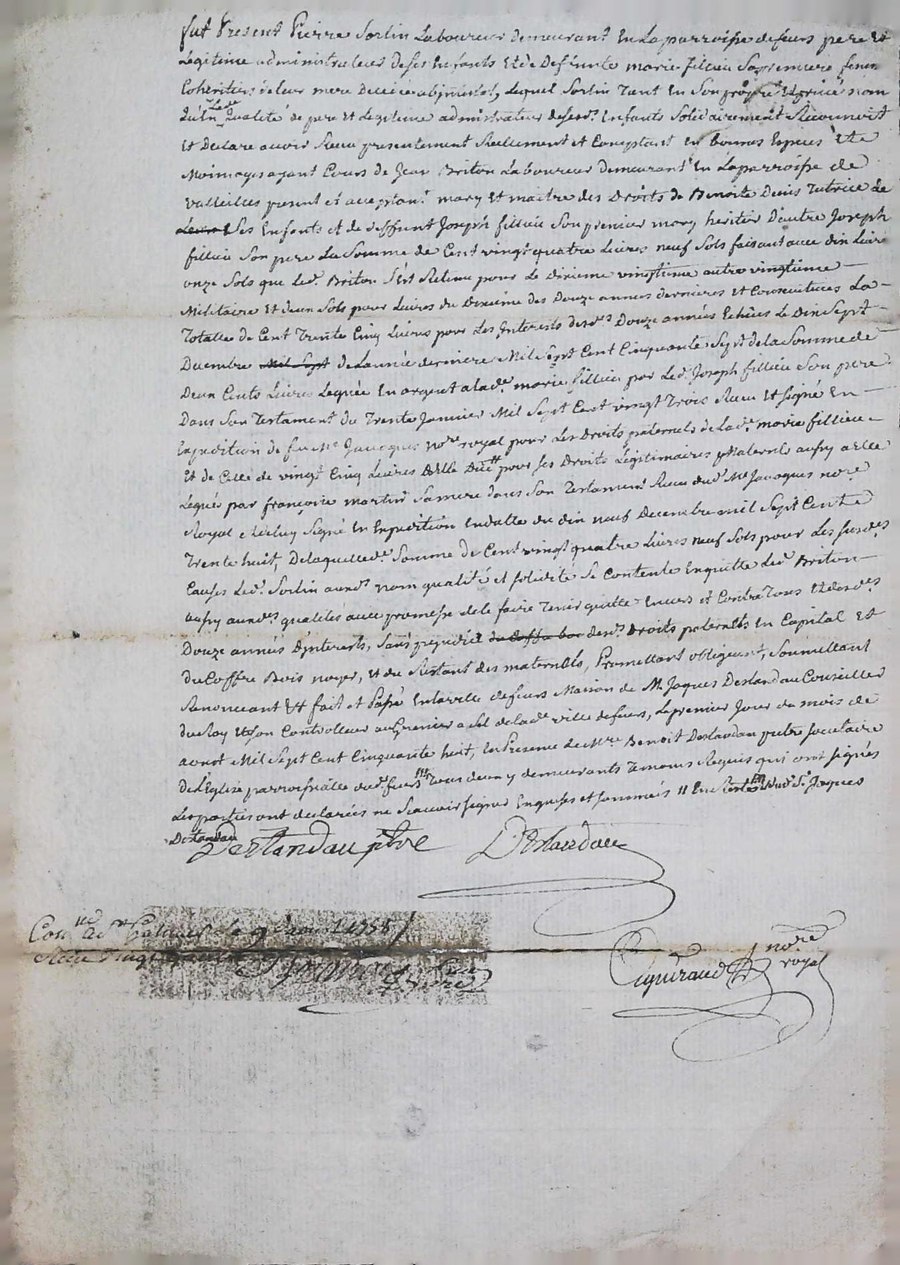 fut Present Pierre Sorlin Laboureur demeurant En La parroisse de feurs pere Et
Légitime administrateur de ses Enfants Et de Deffunte marie fillieu Sa premiere femme
Cohéritiers de leur mere Decedée abjntestat, Lequel Sorlin Tant En Son propre Et privé nom
qu'En La de Qualité de pere Et Legitime administrateur de sesd. Enfants Solidairement Reconnoit
Et Declare avoir Receu presentement Reellement et Comptant En bonnes Especes Et de
Monnoyes ayant Cours de Jean Briton Laboureur demeurant En La parroisse de
Valleilles present et acceptant mary Et maitre des Droits de Benoite Denis Tutrice de
Ses Enfants et de deffunt Joseph fillieu Son premier mary heritier D'autre Joseph
fillieu Son pere La Somme de Cent vingt quatre Livres neuf Sols faisant avec dix Livres
onze Sols que Led. Briton S'est Retenu pour Le Dixieme vingtieme autre vingtieme
Militaire Et deux Sols pour Livres du Dixieme des Douze années dernieres et Consecutives La
Totalle de Cent Trente Cinq Livres pour Les Interets desd. Douze années Echues Le Dix Sept
Decembre Mil Sept de L'année derniere Mil Sept Cent Cinquante Sept de la Somme de
Deux Cents Livres Leguée En argent a lad. marie fillieu par Led. Joseph fillieu Son pere
Dans Son Testament du Trente Janvier Mil Sept Cent vingt Trois Receu Et Signé En
Expedition de feu Me Jacoques nore royal pour Les Droits paternels de Lad. marie fillieu
Et de Celle de vingt Cinq Livres pour ses Droits Légitimaires Maternels aussy a Elle
Legué par françoise martin Sa mere dans Son Testament Receu dud. Me Jacoques nore
Royal Signé En Expedition En datte du dix neuf Decembre mil Sept Cent
Trente huit, De laquelle de Somme de Cent vingt quatre Livres neuf Sols pour Les susdes
Causes Led. Sorlin auxd. nom qualité et solidité Se Contente Enquitte Led. Briton
aussy auxd. qualités avec promesse de le faire Tenir quitte Envers et Contre Tous
Douze années D'interets, Sans prejudice du Coffre boi desd. Droits paternels En Capital Et
du Coffre Bois noyer, et du Restant des maternels, Promettant obligeant, Soumettant
Renonceant Et fait et Passé En la ville de feurs Maison de M. Jaques Deslandau Conseiller
du Roy Et Son Controlleur au Grenier a Sel de lad. ville de feurs, Le premier Jour du mois de
aout Mil Sept Cent Cinquante huit, En Presence de Mre Benoit Deslandau pretre Societaire
de L'Eglise parroissialle dud. feurs Tous deux y demeurants Temoins Requis qui ont signés
Les parties ont declarées ne Scavoir signer Enquises et Sommées Sr Jaques
Deslandau
Deslandau ptre Deslandau
9 aout 1758
nore
royal